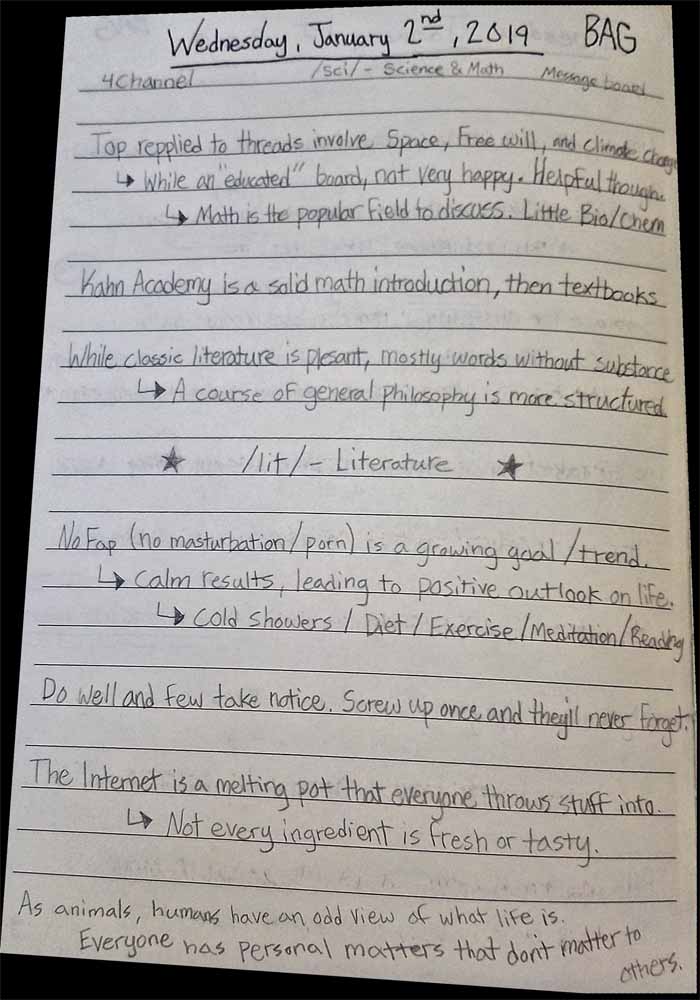 Wednesday, January 2nd, 2019 BAG
4Channel /sci/- Science & Math Message board
Top repplied to threads involve Space, Free will, and Climate change
↳ While an "educated" board, not very happy. Helpful though.
↳ Math is the popular field to discuss. Little Bio/Chem
Kahn Academy is a solid math introduction, then textbooks
While classic literature is plesant, mostly words without substance
↳ A course of general philosophy is more structured.
★ /lit/- Literature ★
No Fap (no masturbation/porn) is a growing goal/trend.
↳ Calm results, leading to positive outlook on life.
↳ Cold Showers / Diet / Exercise / Meditation / Reading
Do well and few take notice. Screw up once and they'll never forget.
The Internet is a melting pot that everyone throws stuff into.
↳ Not every ingredient is fresh or tasty.
As animals, humans have an odd view of what life is.
Everyone has personal matters that don't matter to
others.